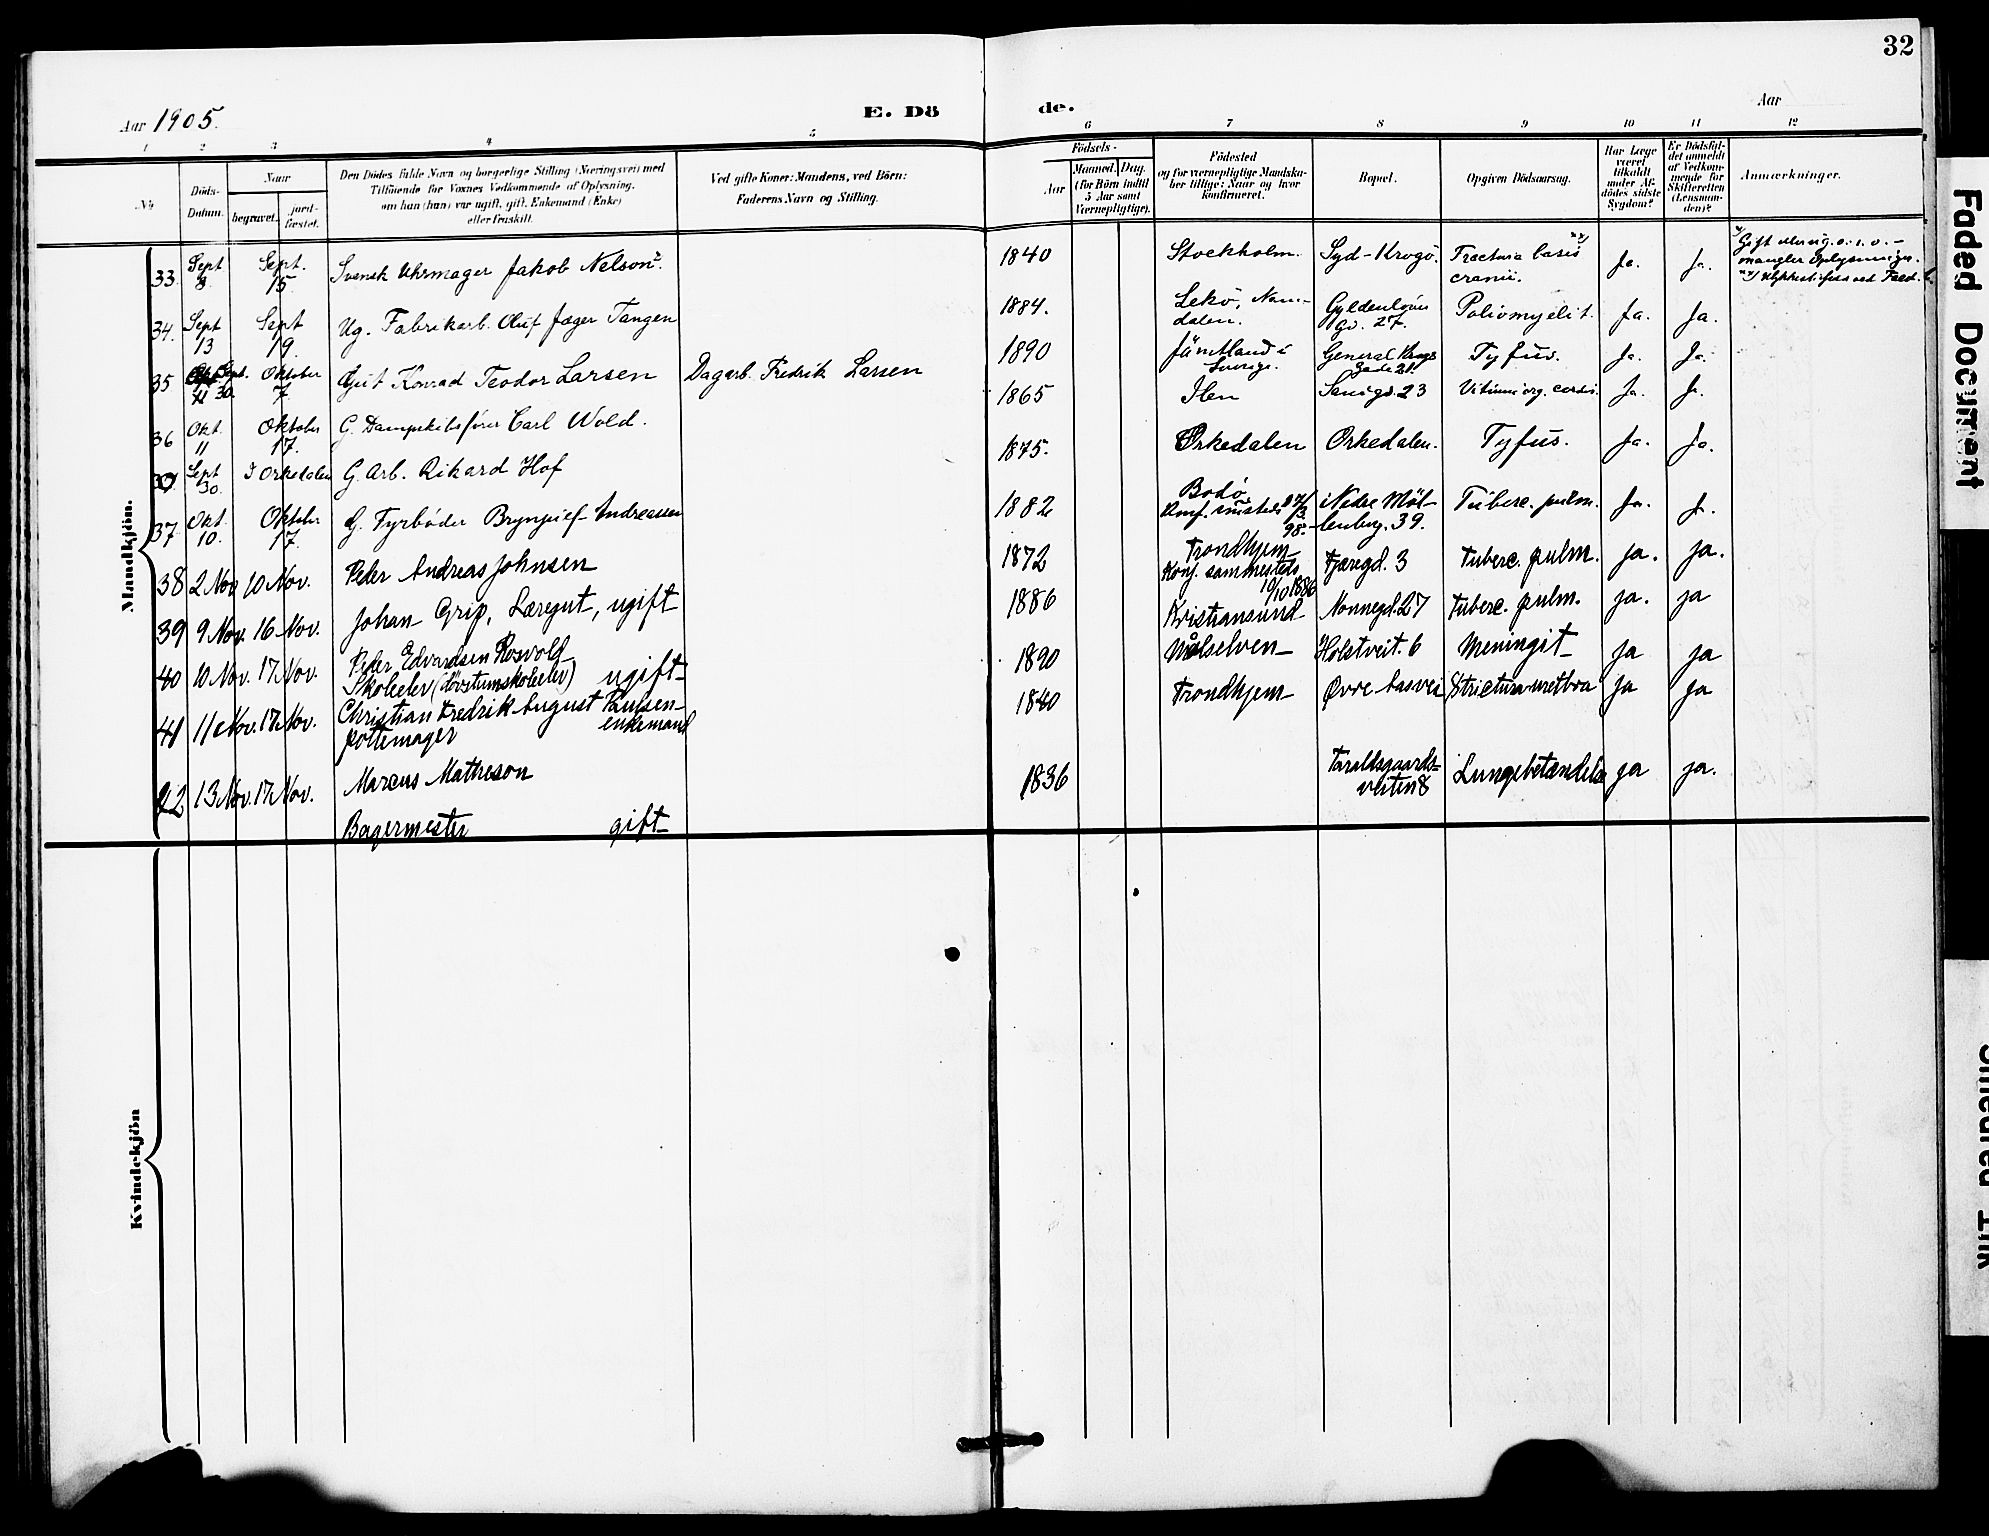 32
Aar 1905.
E. Dö de.
Aar
1 2 3 4 5 6 7 8 9 10 11 12
No
Döds-Datum.
Naar
begravet.
jord-fæstet.
Den Dödes fulde Navn og borgerlige Stilling (Næringsvei) med
Tilföiende for Voxnes Vedkommende af Oplysning,
om han (hun) var ugift, gift, Enkemand (Enke)
eller fraskilt.
Ved gifte Koner: Mandens, ved Börn:
Faderens Navn og Stilling.
Födsels-
Aar
Maaned. Dag.
(for Börn indtil
5 Aar samt
Værnepligtige).
Födested
og for værnepligtige Mandska-
ber tillige: Naar og hvor
konfirmeret.
Bopæl.
Opgiven Dödsaarsag.
Har Læge
været
tilkaldt
under Af-
dödes sidste
Sygdom?
Er Dödsfal-
det anmeldt
af Vedkom-
mende for
Skifteretten
(Lensman-
den)?
Anmærkninger.
Mandkjön.
33. Sept 8 Sept. 15 Svensk Uhrmager Jakob Nelson. 1840 Stockholm. Syd-Krogö. Fractura basis cranii. Ja. Ja. Gift eller ug. o.s.v. - mangler Oplysninger.
34. Sept 13 Sept 19. Ug. Fabrikarb. Oluf Jæger Tangen 1884. Lekö, Nam-dalen. Gyldenlöves Gd. 27. Poliomyelit. Ja. Ja.
35 Sept. 30. Oktober 7. Gut Konrad Teodor Larsen Dagarb. Fredrik Larsen 1890 Jämtland i Sverige. General Gade 21. Tyfus. Ja. Ja.
36 Okt. 11 Oktober 17. G. Dampskibsförer Carl Wold. 1865 Ilen 23 Vitium org. cordis. Ja. Ja.
Sept 30. I Orkedalen G. Arb. Rikard Hof 1875. Orkedalen Orkedalen. Tyfus. Ja. Ja.
37 Okt. 10. Oktober 17. G. Fyrböder Brynjulf Andreassen 1882 Bodö Konf. 98. Nedre Möl-lenberg. 39. Tuberc. pulm. Ja. Ja.
38 2 Nov 10 Nov. Peder Andreas Johnsen 1872 Trondhjem Konf. sammesteds 10/10 1886 Fjæregd. 3 Tuberc. pulm. ja. ja.
39 9 Nov. 16 Nov. Johan Grip, Læregut, ugift 1886 Kristiansund Nonnegd. 27 Tuberc. pulm. ja. ja
40 10 Nov. 17 Nov. Peder Edvardsen Rosvold
Skoleelev (dövstumskoleelev) ugift 1890 Målselven Holstveit. 6 Meningit ja ja
41 11 Nov. 17 Nov. Christian Fredrik August Paulsen
Pottemager enkemand 1840 Trondhjem Övre Aasvei Strictura urethra ja ja
42 13 Nov. 17 Nov. Marcus Matheson
Bagermester gift 1836 Taraldsgaards-veiten 8 Lungebetændelse ja ja.
Kvindekjön
Faded Document